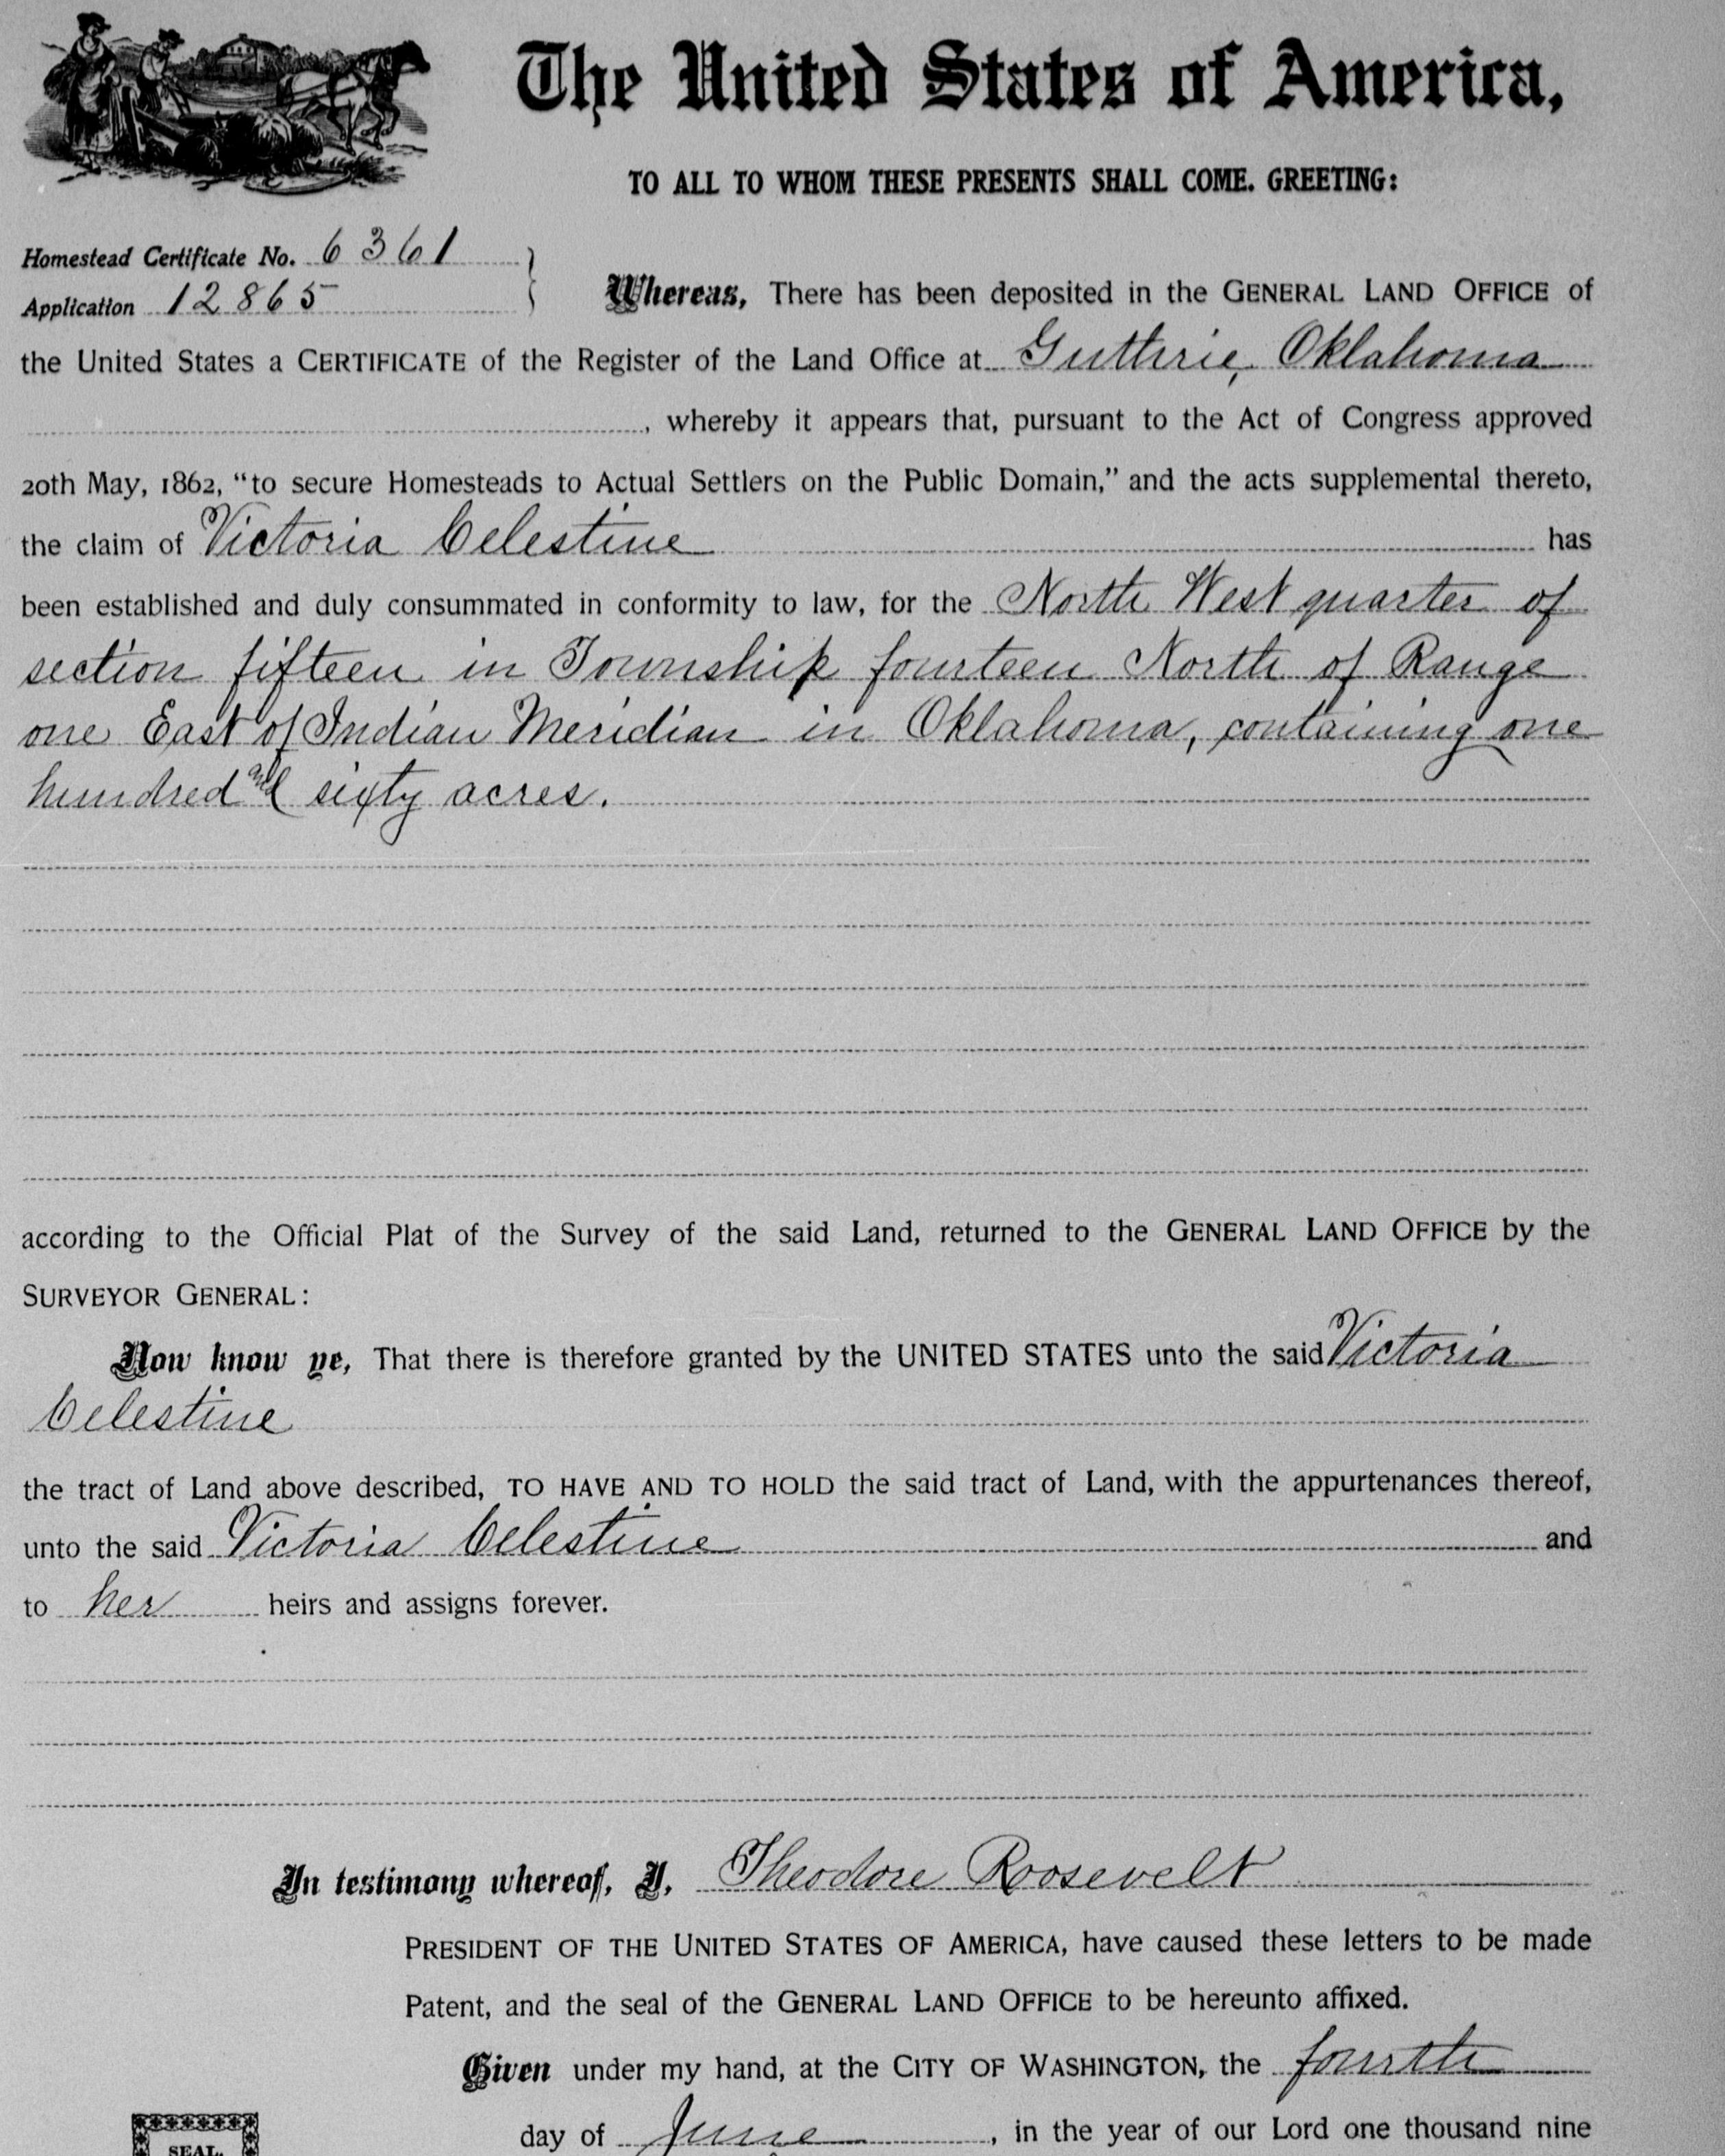 The United States of America,
TO ALL TO WHOM THESE PRESENTS SHALL COME. GREETING:
Homestead Certificate No. 6361
Application 12865
Whereas, There has been deposited in the GENERAL LAND OFFICE of
the United States a CERTIFICATE of the Register of the Land Office at Guthrie, Oklahoma
, whereby it appears that, pursuant to the Act of Congress approved
20th May, 1862, “to secure Homesteads to Actual Settlers on the Public Domain,” and the acts supplemental thereto,
the claim of Victoria Celestine has
been established and duly consummated in conformity to law, for the North West quarter of
section fifteen in Township fourteen North of Range
one East of Indian Meridian in Oklahoma, containing one
hundred and sixty acres.
according to the Official Plat of the Survey of the said Land, returned to the GENERAL LAND OFFICE by the
SURVEYOR GENERAL:
Now know ye, That there is therefore granted by the UNITED STATES unto the said Victoria
Celestine
the tract of Land above described, TO HAVE AND TO HOLD the said tract of Land, with the appurtenances thereof,
unto the said Victoria Celestine and
to her heirs and assigns forever.
In testimony whereof, I, Theodore Roosevelt
PRESIDENT OF THE UNITED STATES OF AMERICA, have caused these letters to be made
Patent, and the seal of the GENERAL LAND OFFICE to be hereunto affixed.
Given under my hand, at the CITY OF WASHINGTON, the fourth
day of June, in the year of our Lord one thousand nine
SEAL.